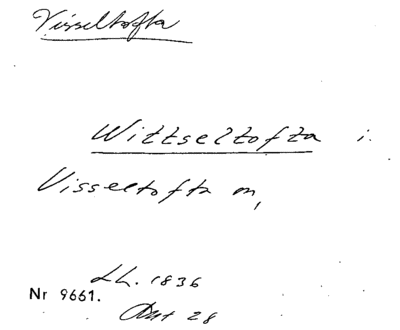 Visseltofta
Wittseltofta i.
Visseltofta sn,
LL. 1836
Nr 9661.
Akt 28